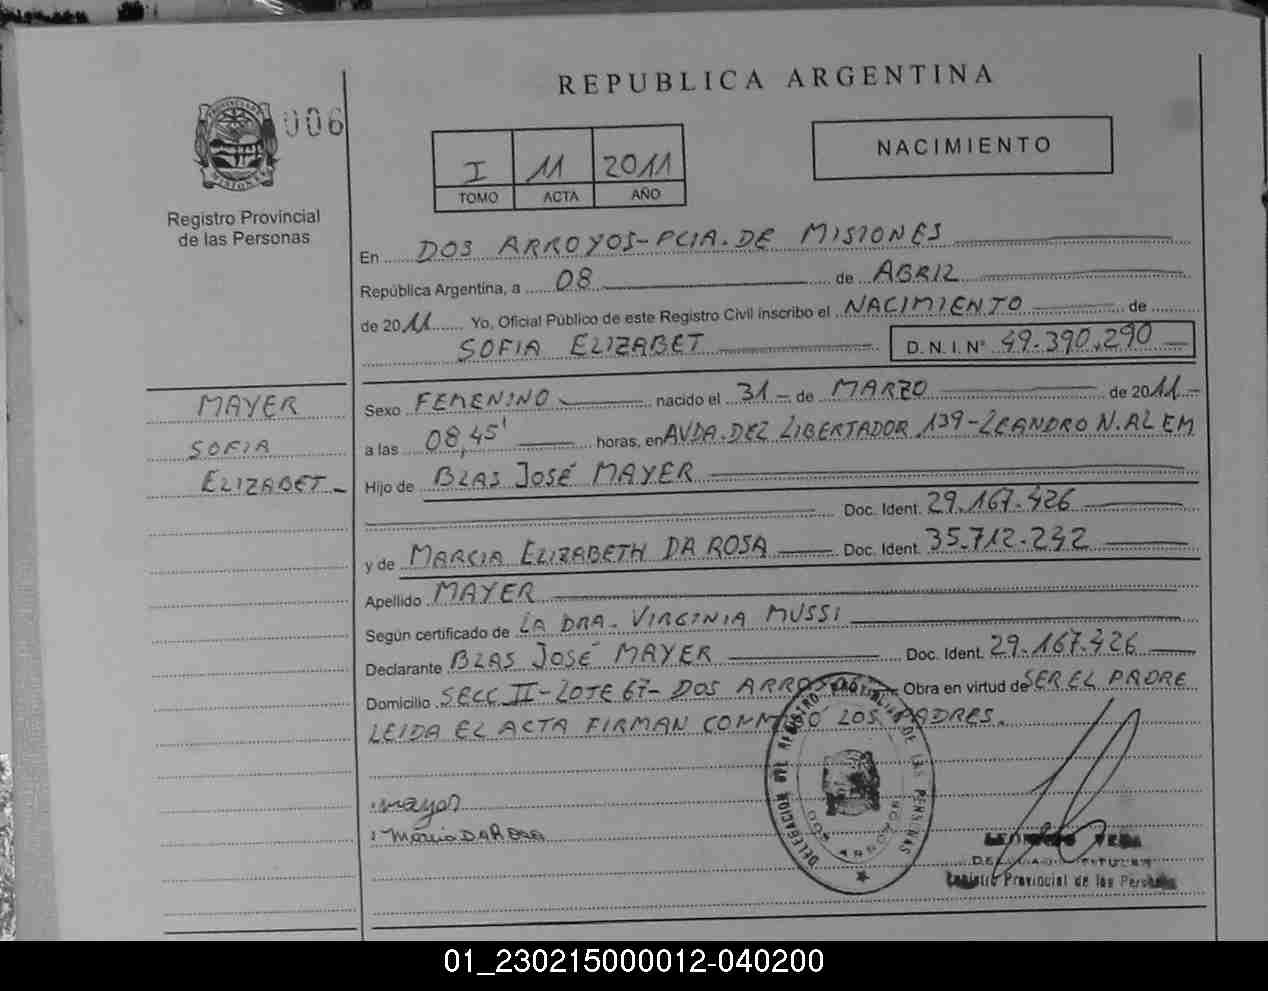 REPUBLICA ARGENTINA
PROVINCIA DE
MISIONES
006
Registro Provincial
de las Personas
I 11 2011
TOMO ACTA AÑO
NACIMIENTO
En DOS ARROYOS-PCIA. DE MISIONES
República Argentina, a 08 de ABRIL
de 2011 Yo, Oficial Público de este Registro Civil inscribo el NACIMIENTO de
SOFIA ELIZABET D. N. I. N° 49.390.290
MAYER
SOFIA
ELIZABET
Sexo FEMENINO nacido el 31 de MARZO de 2011
a las 08,45' horas, en AVDA. DEL LIBERTADOR 139-LEANDRO N. ALEM
Hijo de BLAS JOSÉ MAYER
Doc. Ident. 29.167.426
y de MARCIA ELIZABETH DA ROSA Doc. Ident. 35.712.242
Apellido MAYER
Según certificado de LA DRA. VIRGINIA MUSSI
Declarante BLAS JOSÉ MAYER Doc. Ident. 29.167.426
Domicilio SECC II-LOTE 67- DOS ARROYOS Obra en virtud de SER EL PADRE
LEIDA EL ACTA FIRMAN CONMIGO LOS PADRES.
mayer
Marcia DA ROSA
DELEGACION DEL REGISTRO PROVINCIAL DE LAS PERSONAS
DOS ARROYOS
VERA
Registro Provincial de las Personas
01_230215000012-040200